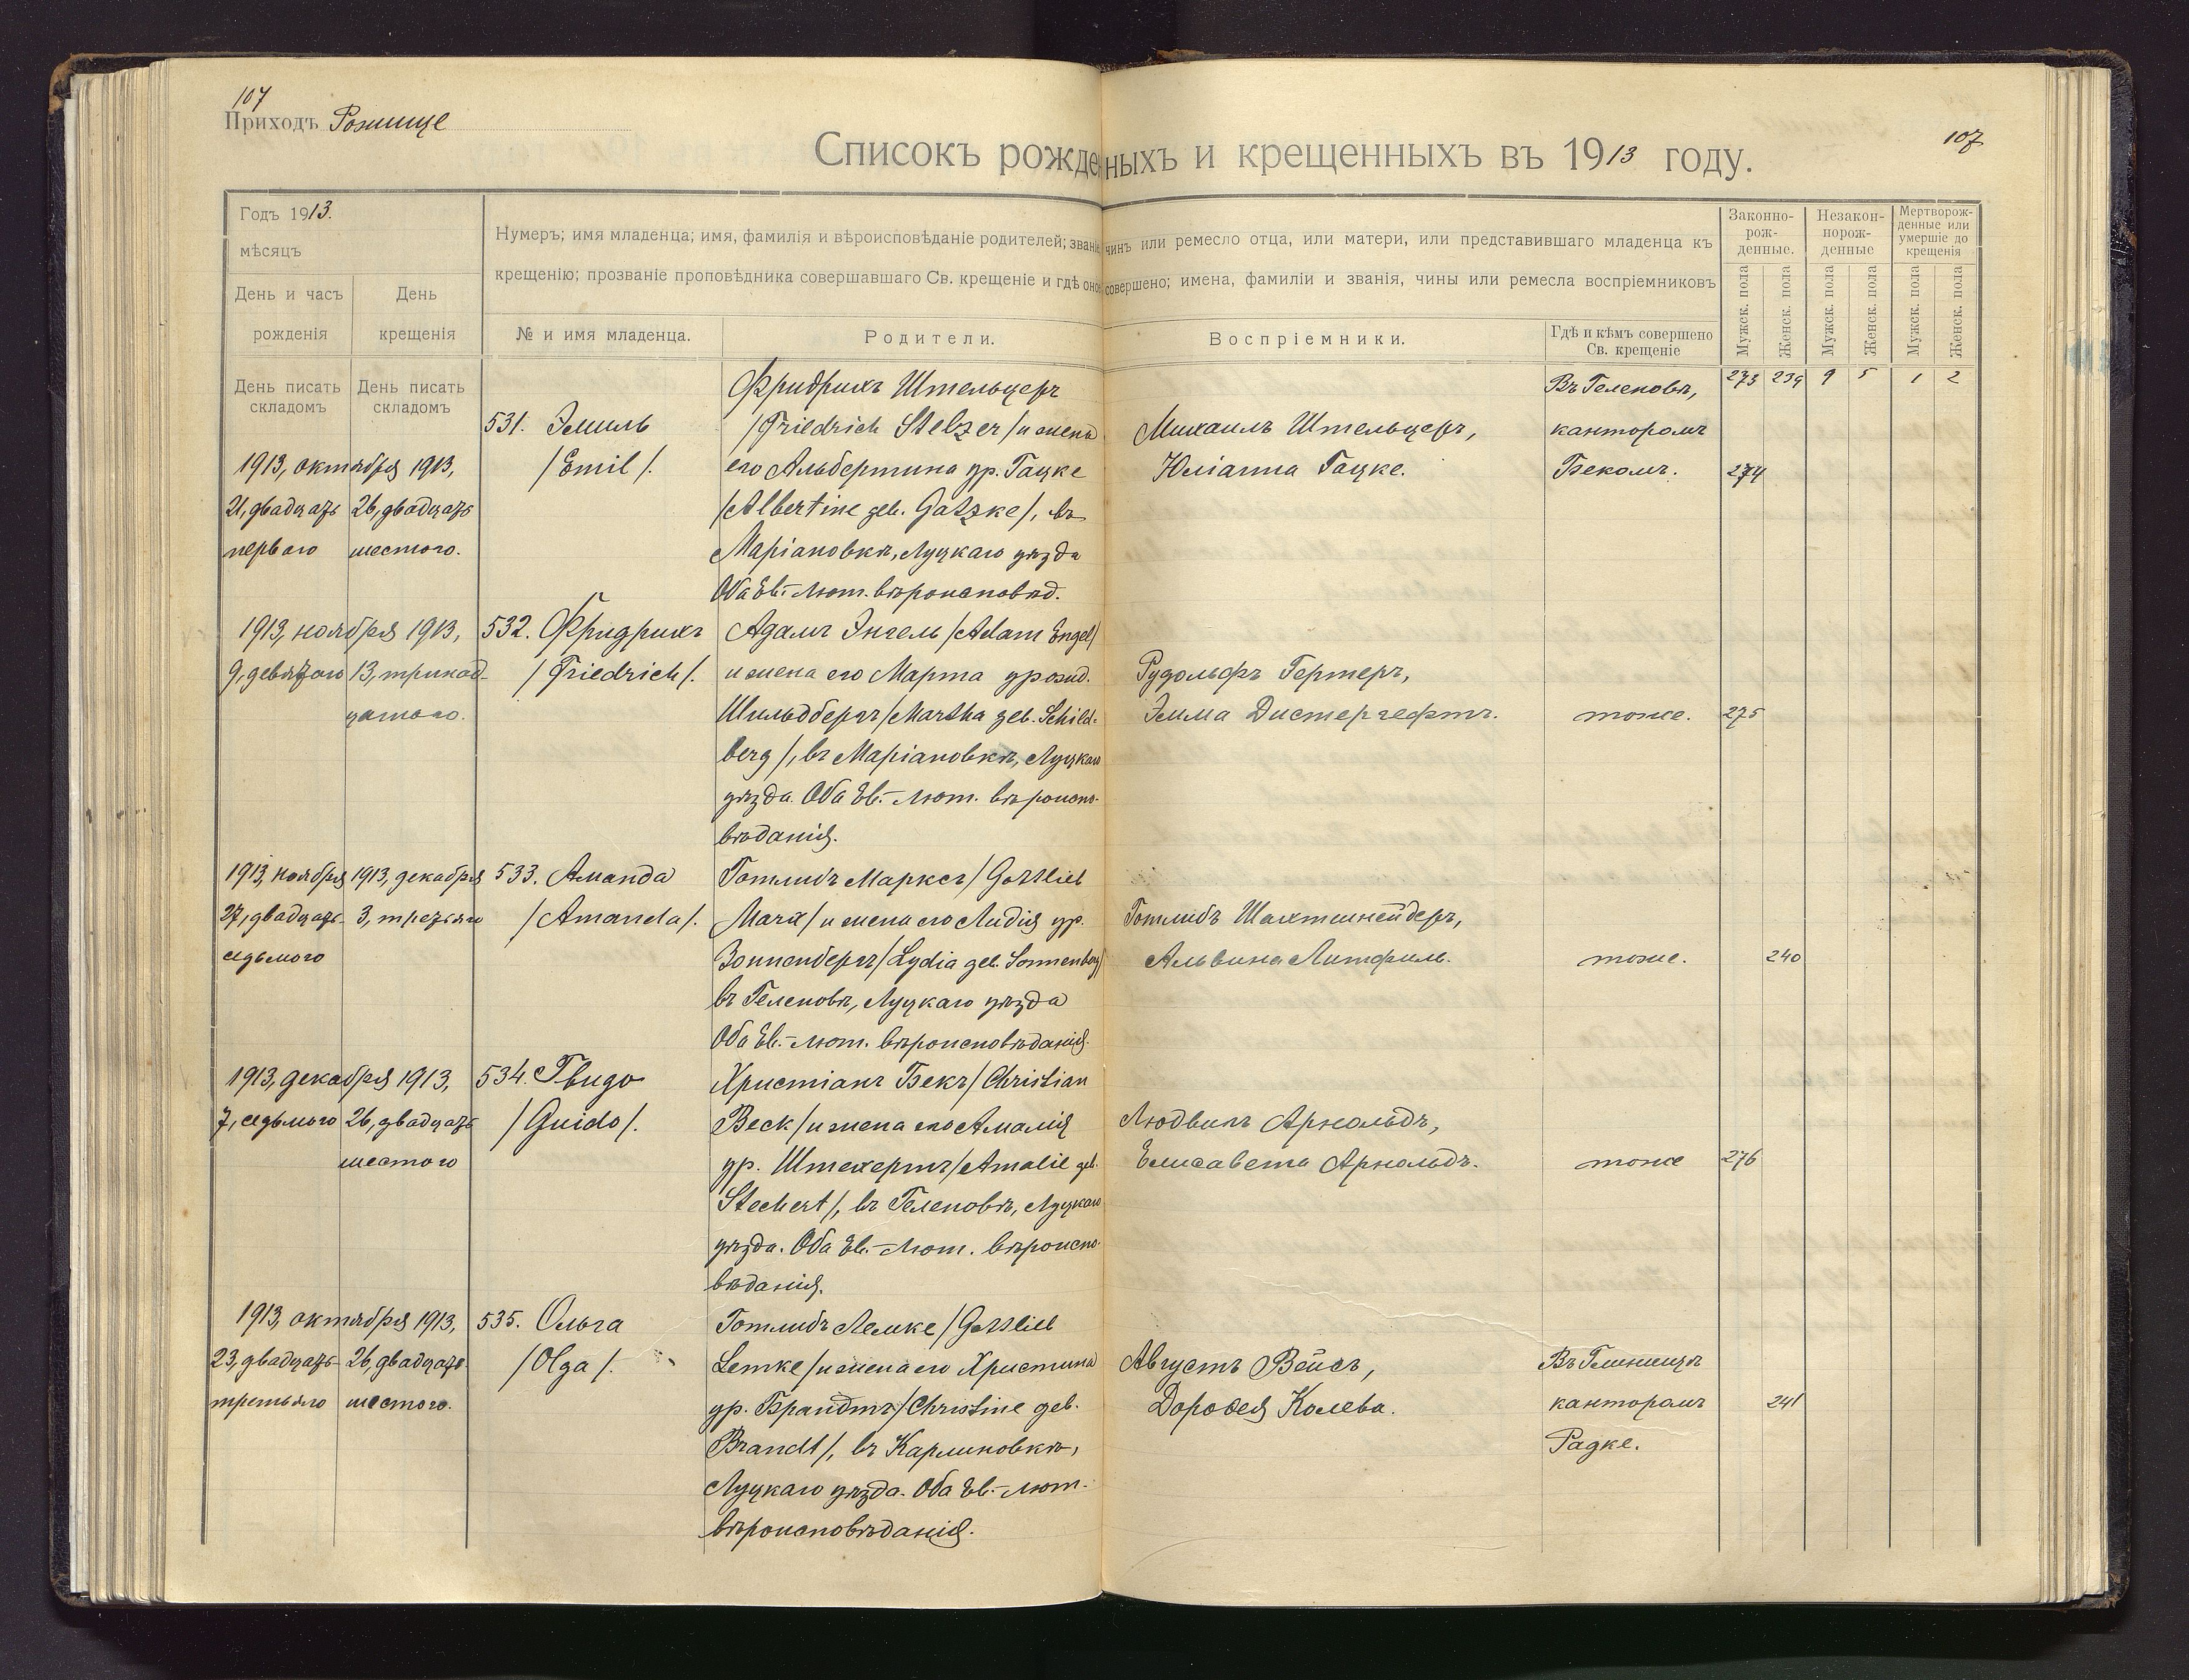 107
Приходъ Рожище
107
Списокъ рожденныхъ и крещенныхъ въ 1913 году.
Годъ 1913.
мѣсяцъ
День и часъ рожденія
День крещенія
Нумеръ; имя младенца; имя, фамилія и вѣроисповѣданіе родителей; званіе чинъ или ремесло отца, или матери, или представившаго младенца къ
крещенію; прозваніе проповѣдника совершавшаго Св. крещеніе и гдѣ оное совершено; имена, фамиліи и званія, чины или ремесла воспріемниковъ
№ и имя младенца.
Родители.
Воспріемники.
Гдѣ и кѣмъ совершено
Св. крещеніе
Законно-
рож-
денные.
Незакон-
порож-
денные
Мертворож-
денные или
умершіе до
крещенія
Мужск. пола
Женск. пола
Мужск. пола
Женск. пола
Мужск. пола
Женск. пола
День писать
складомъ
День писать
складомъ
273 239 9 5 1 2
1913, октября 1913,
21, двадцать
перваго
26, двадцать
шестого.
531. Эмиль
/Emil/.
Фридрихъ Штельцеръ
/Friedrich Stelzer/ и жена
его Альбертина ур. Гацке
/Albertine geb. Gatzke/, въ
Маріановкѣ, Луцкаго уѣзда
Оба Ев.-Лют. вѣроисповѣд.
Михаилъ Штельцеръ,
Юліанна Гацке.
Въ Геленовѣ,
канторомъ
Бекомъ.
274
1913, ноября 1913,
9, девятаго
13, тринад-
цатаго.
532. Фридрихъ
/Friedrich/.
Адамъ Энгель /Adam Engel/
и жена его Марта урожд.
Шильдбергъ /Martha geb. Schild-
berg/, въ Маріановкѣ, Луцкаго
уѣзда. Оба Ев.-Лют. вѣроиспо-
вѣданія.
Рудольфъ Гертеръ,
Эмма Дистергефтъ.
тоже.
275
1913, ноября
27, двадцать
седьмого
1913, декабря
3, третьяго
533. Аманда
/Amanda/.
Готлибъ Марксъ /Gottlieb
Marx/ и жена его Лидія ур.
Зонненбергъ /Lydia geb. Sonnenberg/
въ Геленовѣ, Луцкаго уѣзда
Оба Ев.-Лют. вѣроисповѣданія.
Готлибъ Шахтшнейдеръ,
Альвина Литфиль.
тоже.
240
1913, декабря 1913,
7, седьмого
26, двадцать
шестого
534. Гвидо
/Guido/.
Христіанъ Бекъ /Christian
Beck/ и жена его Амалія
ур. Штехертъ /Amalie geb.
Stechert/, въ Геленовѣ, Луцкаго
уѣзда. Оба Ев.-Лют. вѣроиспо-
вѣданія.
Людвигъ Арнольдъ,
Елисавета Арнольдъ.
тоже
276
1913, октября 1913,
23, двадцать
третьяго
26, двадцать
шестого.
535. Ольга
/Olga/.
Готлибъ Лемке /Gottlieb
Lemke/ и жена его Христина
ур. Брандтъ /Christine geb.
Brandt/, въ Карлиновкѣ,
Луцкаго уѣзда. Оба Ев.-Лют.
вѣроисповѣданія.
Августъ Вейсъ,
Доровея Колева.
Въ
канторомъ
Радке.
241